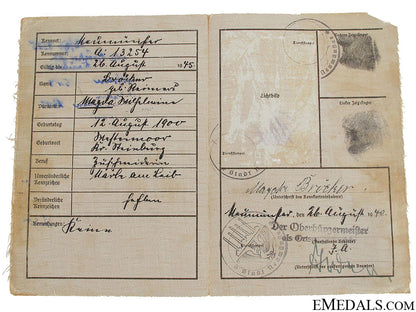 Kennort: Neumünster
Kennummer: A: 13254
Gültig bis 26. August 1945.
Name Bröcker
geb. Reimers
Vornamen Magda Wilhelmine
Geburtstag 12. August 1900
Geburtsort Westermoor
Kr. Steinburg
Beruf Zuschneiderin
Unveränderliche Kennzeichen Narbe am Leib
Veränderliche Kennzeichen fehlen
Bemerkungen: Keine
Lichtbild
Rechter Zeigefinger
Linker Zeigefinger
Magda Bröcker
(Unterschrift des Kennkarteninhabers)
Neumünster, den 26. August 1940.
Der Oberbürgermeister
als Ort
(Ausstellende Behörde)
J. A.
(Unterschrift des ausfertigenden Beamten)
EMEDALS.COM